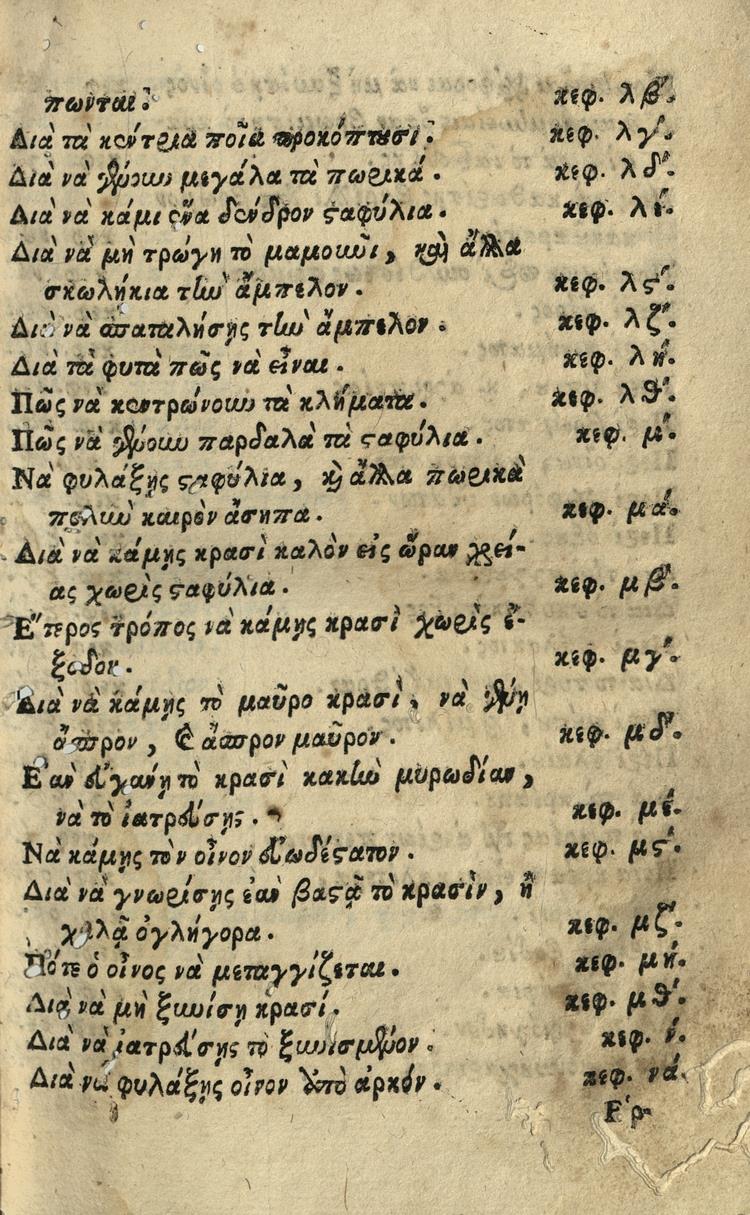 πωνται. κεφ. λβ'.
Διὰ τὰ κέντρια ποῖα προκόπτουσι. κεφ. λγ'.
Διὰ νὰ γένουν μεγάλα τὰ πωρικά. κεφ. λδ'.
Διὰ νὰ κάμι ἕνα δένδρον σταφύλια. κεφ. λέ.
Διὰ νὰ μὴ τρώγῃ τὸ μαμοῦνι, καὶ ἄλλα
σκωλήκια τὴν ἄμπελον. κεφ. λς'.
Διὰ νὰ ἀπαταλήσῃς τὴν ἄμπελον. κεφ. λζ'.
Διὰ τὰ φυτὰ πῶς νὰ εἶναι. κεφ. λή.
Πῶς νὰ κεντρώνουν τὰ κλήματα. κεφ. λθ'.
Πῶς νὰ γένουν παρδαλὰ τὰ σταφύλια. κεφ. μ'.
Νὰ φυλάξῃς σταφύλια, καὶ ἄλλα πωρικὰ
πολὺν καιρὸν ἄσηπα. κεφ. μά.
Διὰ νὰ κάμῃς κρασὶ καλὸν εἰς ὥραν χρεί-
ας χωρὶς σταφύλια. κεφ. μβ'.
Ἕτερος τρόπος νὰ κάμῃς κρασὶ χωρὶς ἔ-
ξοδον. κεφ. μγ'.
Διὰ νὰ κάμῃς τὸ μαῦρο κρασὶ, νὰ γένῃ
ἄσπρον, καὶ ἄσπρον μαῦρον. κεφ. μδ'.
Ἐὰν εὐγάνῃ τὸ κρασὶ κακὴν μυρωδίαν,
νὰ τὸ ἰατρεύσῃς. κεφ. μέ.
Νὰ κάμῃς τὸν οἶνον εὐωδέστατον. κεφ. μς'.
Διὰ νὰ γνωρίσῃς ἐὰν βαστᾷ τὸ κρασὶν, ἢ
χαλᾷ ὀγλήγορα. κεφ. μζ'.
Πότε ὁ οἶνος νὰ μεταγγίζεται. κεφ. μή.
Διὰ νὰ μὴ ξυνίσῃ κρασί. κεφ. μθ'.
Διὰ νὰ ἰατρεύσῃς τὸ ξυνισμένον. κεφ. ν'.
Διὰ νὰ φυλάξῃς οἶνον ὑπὸ ἀρκόν. κεφ. νά.
Ἐρ-